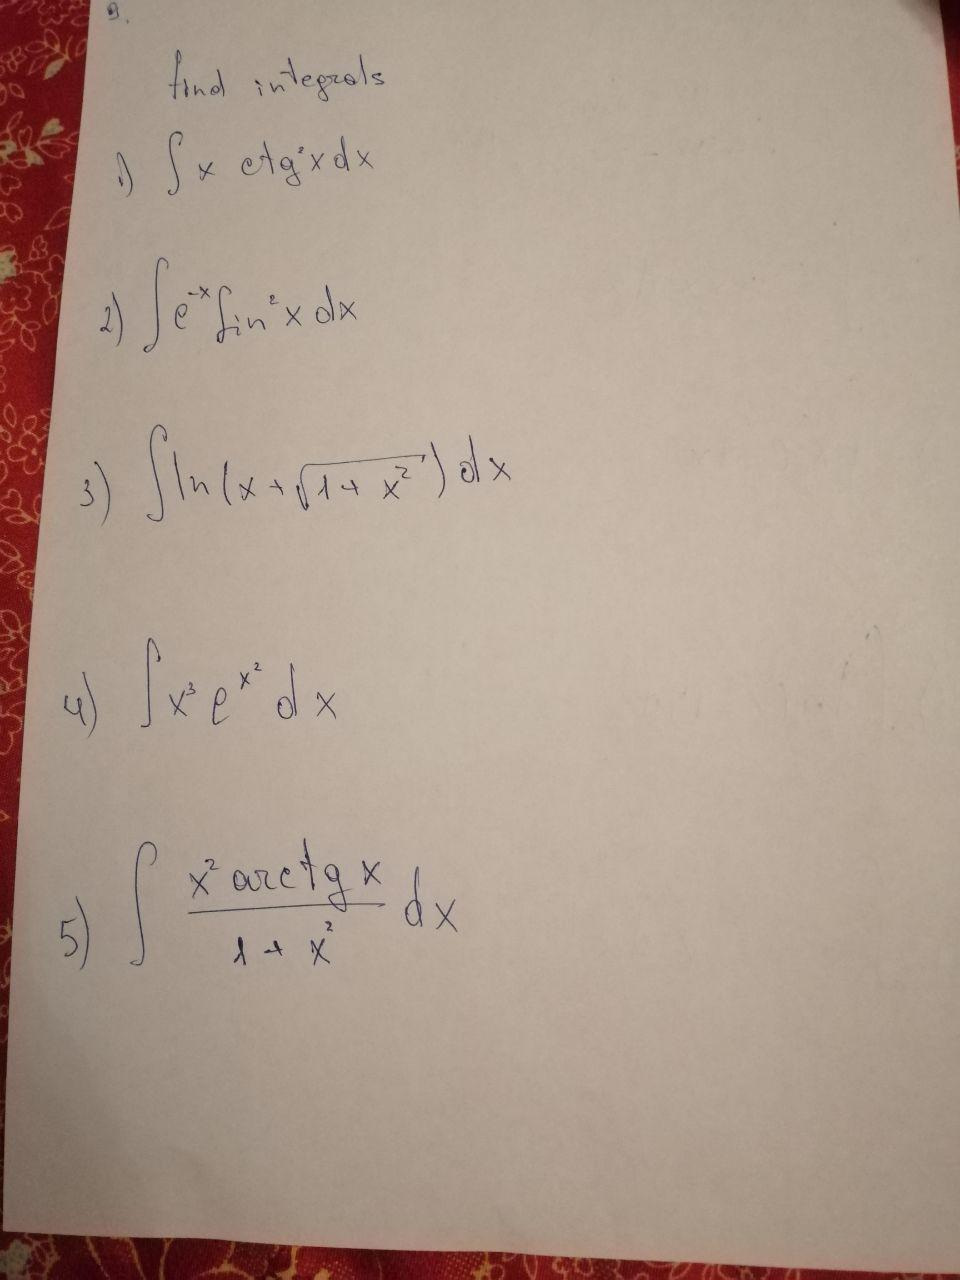 9.
find integrals
1) ∫ x ctg²x dx
2) ∫ e⁻ˣ sin²x dx
3) ∫ ln(x + √(1 + x²)) dx
4) ∫ x³ e^x² dx
5) ∫ x² arctg x / 1 + x² dx